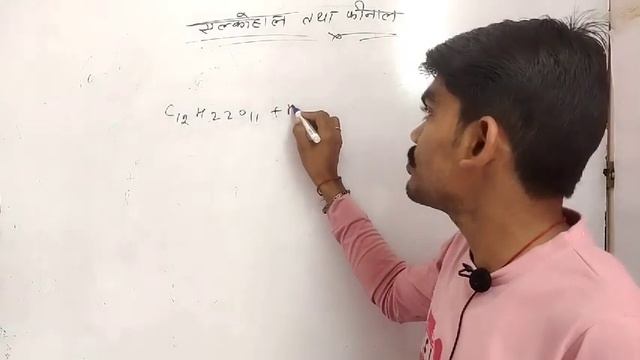 एल्कोहाल तथा फीनाल
C12H22O11 +